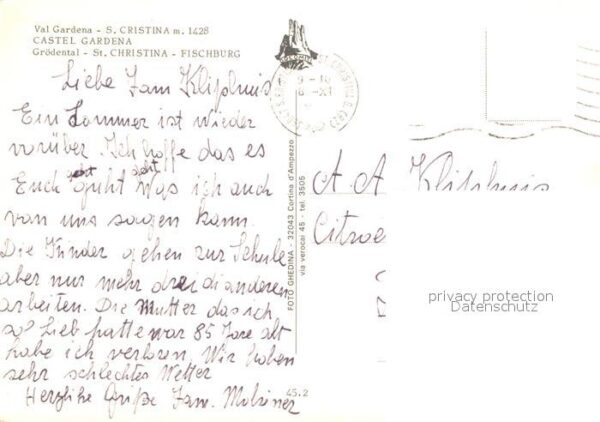 Val Gardena - S. CRISTINA m. 1428
CASTEL GARDENA
Grödental - St. CHRISTINA - FISCHBURG
Liebe Fam Klijphuis
Ein Sommer ist wieder
vorüber. Ich hoffe das es
Euch gut geht was ich auch
van uns sagen kann.
Die Kinder gehen zur Schule
aber nur mehr drei di anderen
arbeiten. Die Mutter das ich,
so Lieb hatte war 85 Jare alt
habe ich verloren, Wir haben
sehr schlechtes Wetter
Herzliche Grüße Fam.
FOTO GHEDINA - 32043 Cortina d'Ampezzo
via verocai 45 - tel. 3505
45.2
A A Klijphuis
Citroe
privacy protection
Datenschutz